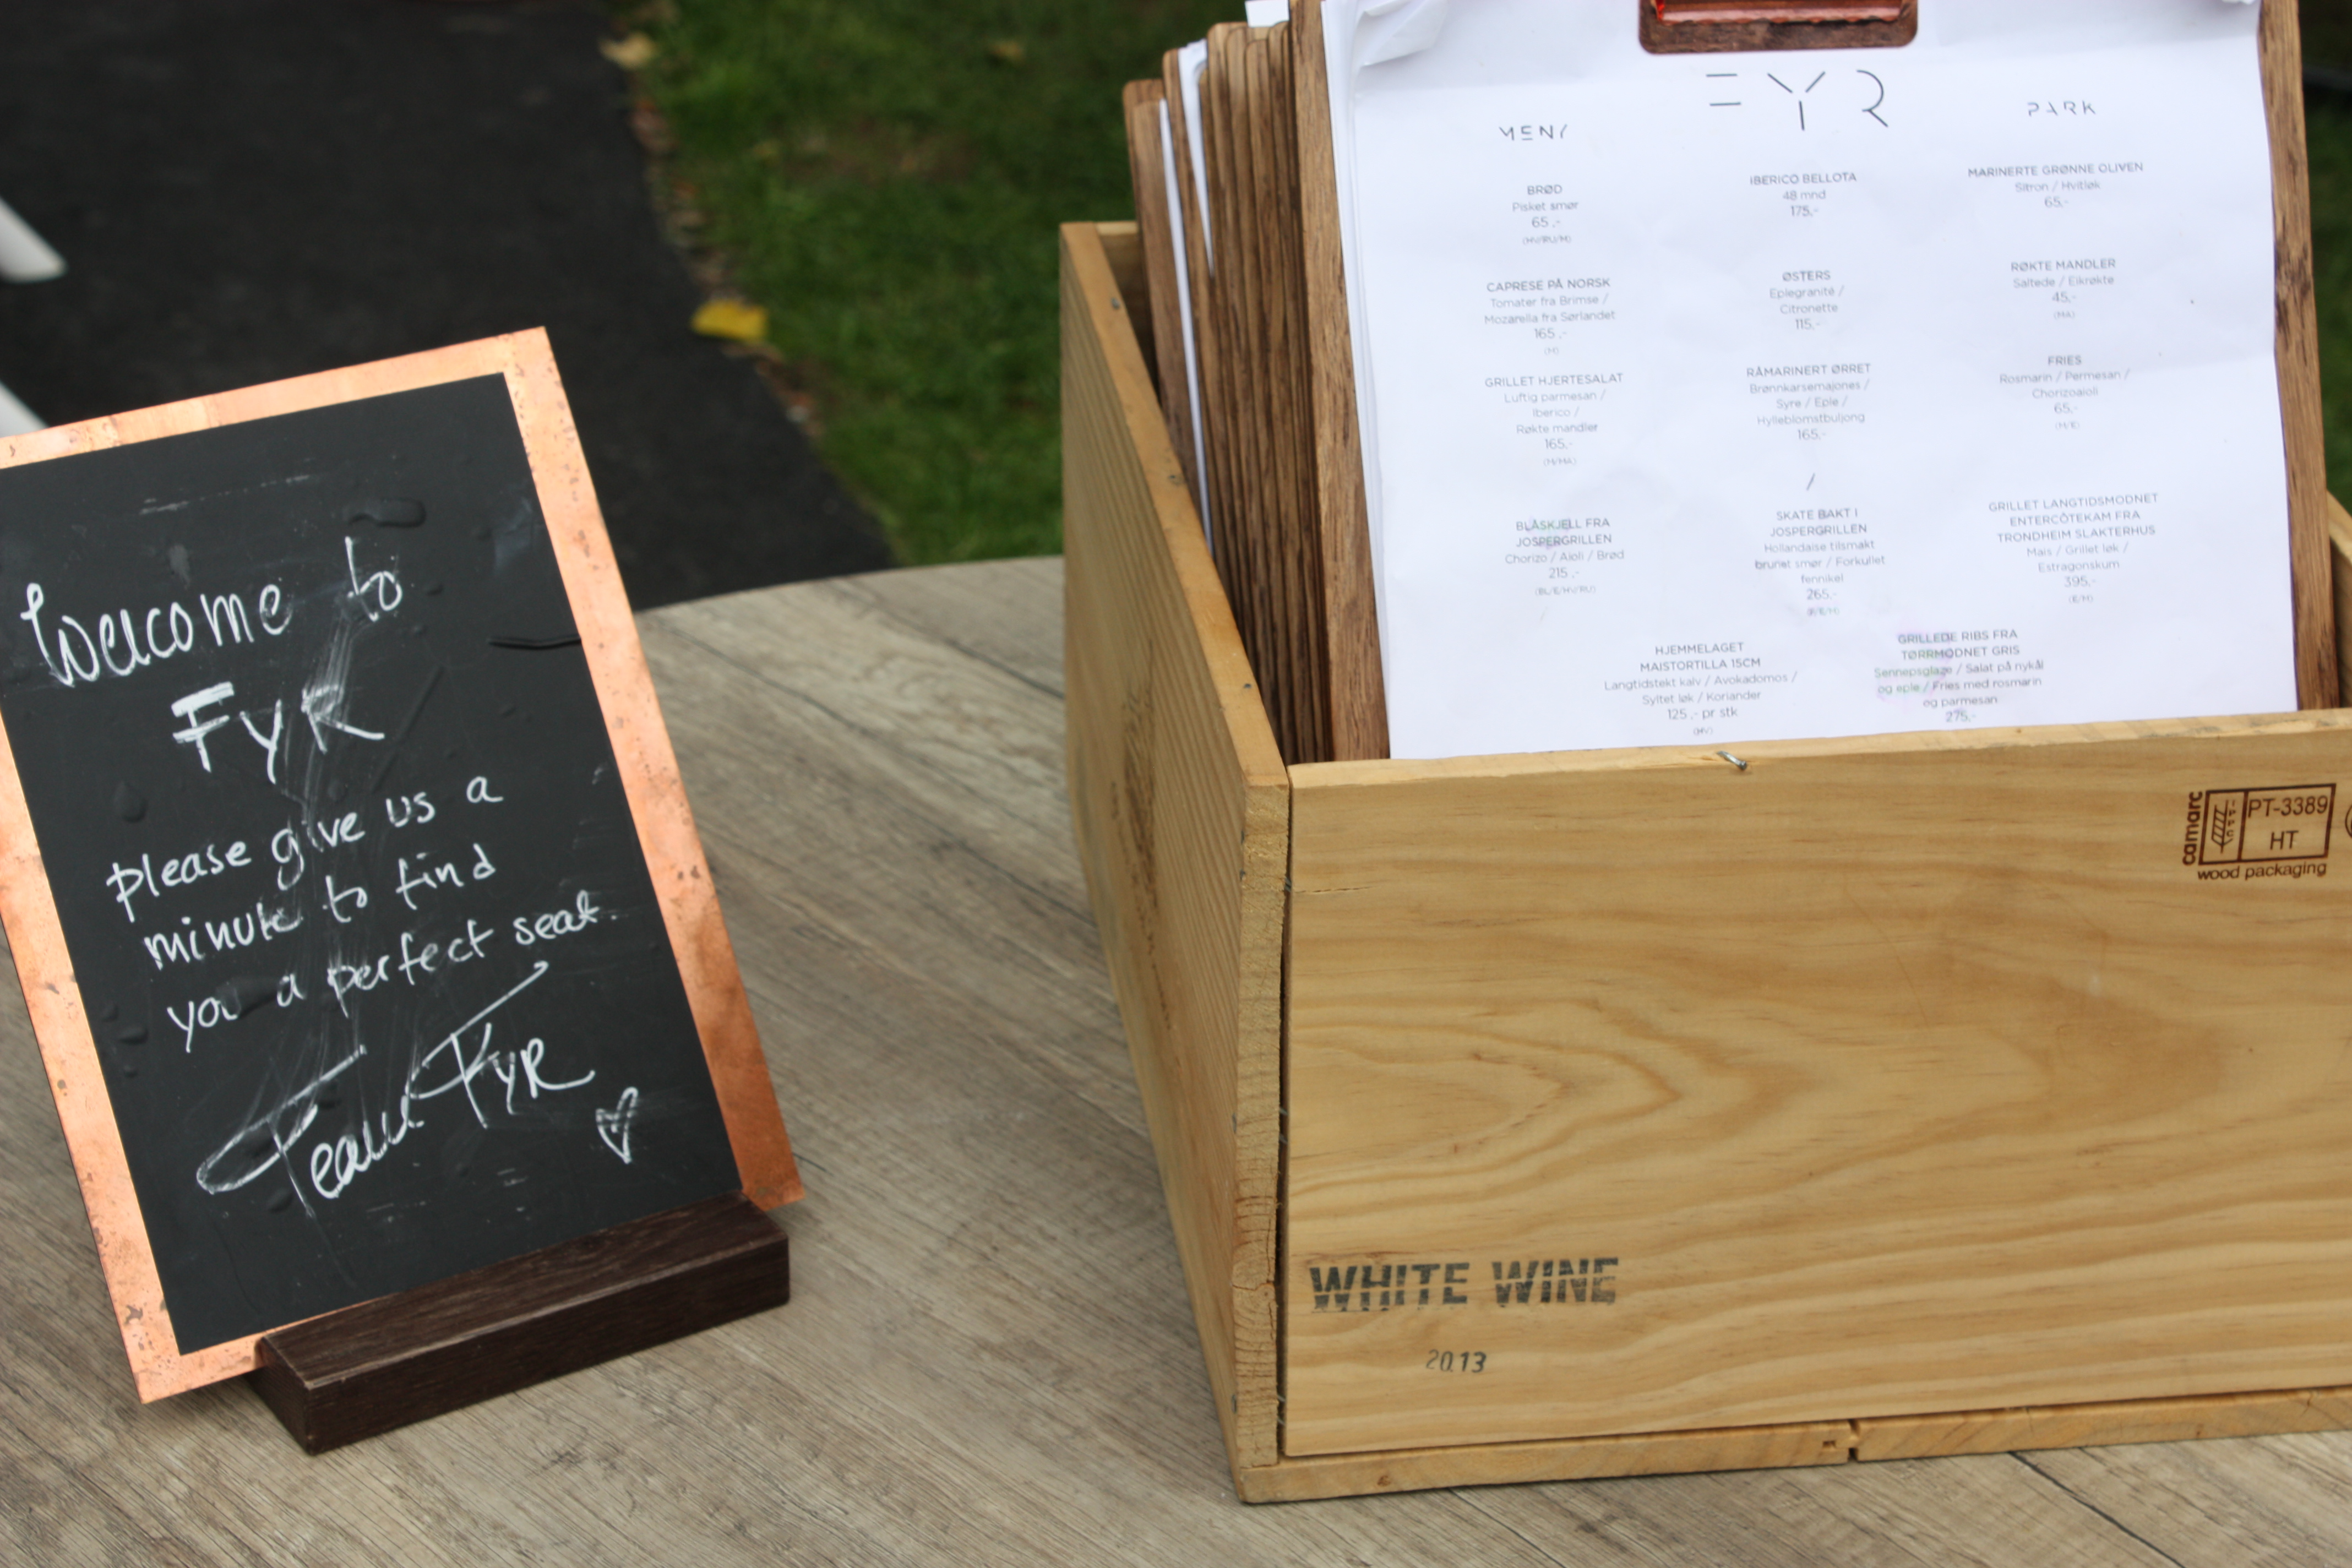 Welcome to
FYR
please give us a
minute to find
you a perfect seat.
Team FYR
MENY
FYR
PARK
BRØD
Pisket smør
65,-
(HV/RU/M)
CAPRESE PÅ NORSK
Tomater fra Brimse /
Mozarella fra Sørlandet
165,-
(M)
GRILLET HJERTESALAT
Luftig parmesan /
Iberico /
Røkte mandler
165,-
(M/MA)
BLÅSKJELL FRA
JOSPERGRILLEN
Chorizo / Aioli / Brød
215,-
(BL/E/HV/RU)
IBERICO BELLOTA
48 mnd
175,-
ØSTERS
Eplegranité /
Citronette
115,-
RÅMARINERT ØRRET
Brønnkarsemajones /
Syre / Eple /
Hylleblomstbuljong
165,-
/
SKATE BAKT I
JOSPERGRILLEN
Hollandaise tilsmakt
brunet smør / Forkullet
fennikel
265,-
(F/E/M)
MARINERTE GRØNNE OLIVEN
Sitron / Hvitløk
65,-
RØKTE MANDLER
Saltede / Eikrøkte
45,-
(MA)
FRIES
Rosmarin / Permesan /
Chorizoaioli
65,-
(M/E)
GRILLET LANGTIDSMODNET
ENTERCÔTEKAM FRA
TRONDHEIM SLAKTERHUS
Mais / Grillet løk /
Estragonskum
395,-
(E/M)
HJEMMELAGET
MAISTORTILLA 15CM
Langtidstekt kalv / Avokadomos /
Syltet løk / Koriander
125,- pr stk
(HV)
GRILLEDE RIBS FRA
TØRRMODNET GRIS
Sennepsglaze / Salat på nykål
og eple / Fries med rosmarin
og parmesan
275,-
camarc
IPPC
PT-3389
HT
wood packaging
WHITE WINE
2013